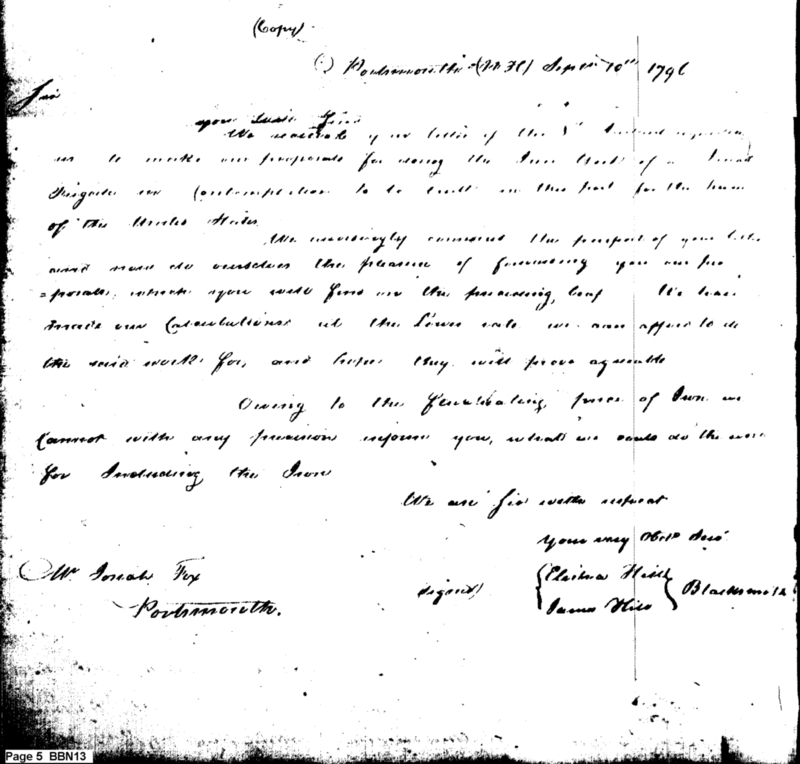 (Copy)
Portsmouth (N H) Sept 10th 1796
Sir
We received your letter of the 8th Instant requesting
us to make our proposals for doing the Iron Work of a
Frigate in Contemplation to be built in this port for the
of the United States
We accordingly the purport of your letter
and now do ourselves the pleasure of forwarding you our pro
=posals, which you will find on the preceding leaf We have
made our Calculations at the Lowest rate we can afford to do
the said work for, and hope they will prove agreeable
Owing to the price of Iron we
Cannot with any precision inform you, what we could do the work
for Including the Iron
We are Sir with respect
your very Obt Ser
Mr Josiah Fox
Portsmouth.
signed
Elisha Hill
James Hill
Blacksmiths
Page 5 BBN13